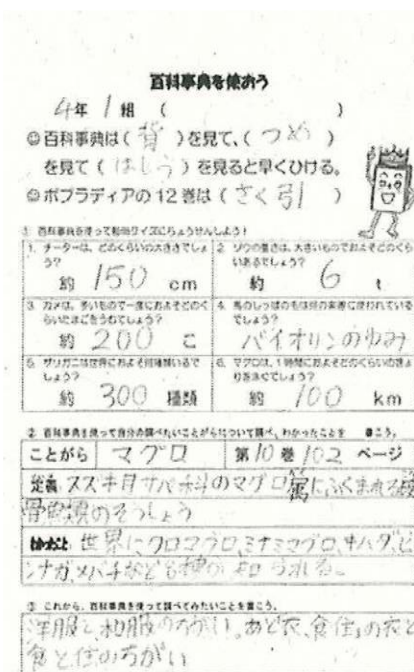 百科事典を使おう
4年 1組 ( )
☺百科事典は( 背 )を見て、( つめ )
を見て( はしら )を見ると早くひける。
☺ポプラディアの12巻は( さく引 )
① 百科事典を使って動物クイズにちょうせんしよう!
1. チーターは、どのくらいの大きさでしょう?
約 150 cm
2. ゾウの重さは、大きいものでおよそどのくらいあるでしょう?
約 6 t
3. カメは、多いもので一度におよそどのくらいたまごをうむでしょう?
約 200 こ
4. 馬のしっぽの毛は何の楽器に使われているでしょう?
バイオリンのゆみ
5. ザリガニは世界におよそ何種類いるでしょう?
約 300 種類
6. マグロは、1時間におよそどのくらいの速さで泳ぐでしょう?
約 100 km
② 百科事典を使って自分の調べたいことがらについて調べ、わかったことを 書こう。
ことがら マグロ 第10巻 102 ページ
定義 スズキ目サバ科のマグロ属にふくまれる
骨魚類のそうしょう
世界にクロマグロ,ミナミマグロ,キハダ,ビ
ンナガ,メバチなど8種が知られる。
③ これから、百科事典を使って調べてみたいことを書こう。
洋服と和服のちがい。あと衣、食住の衣と
食と住のちがい